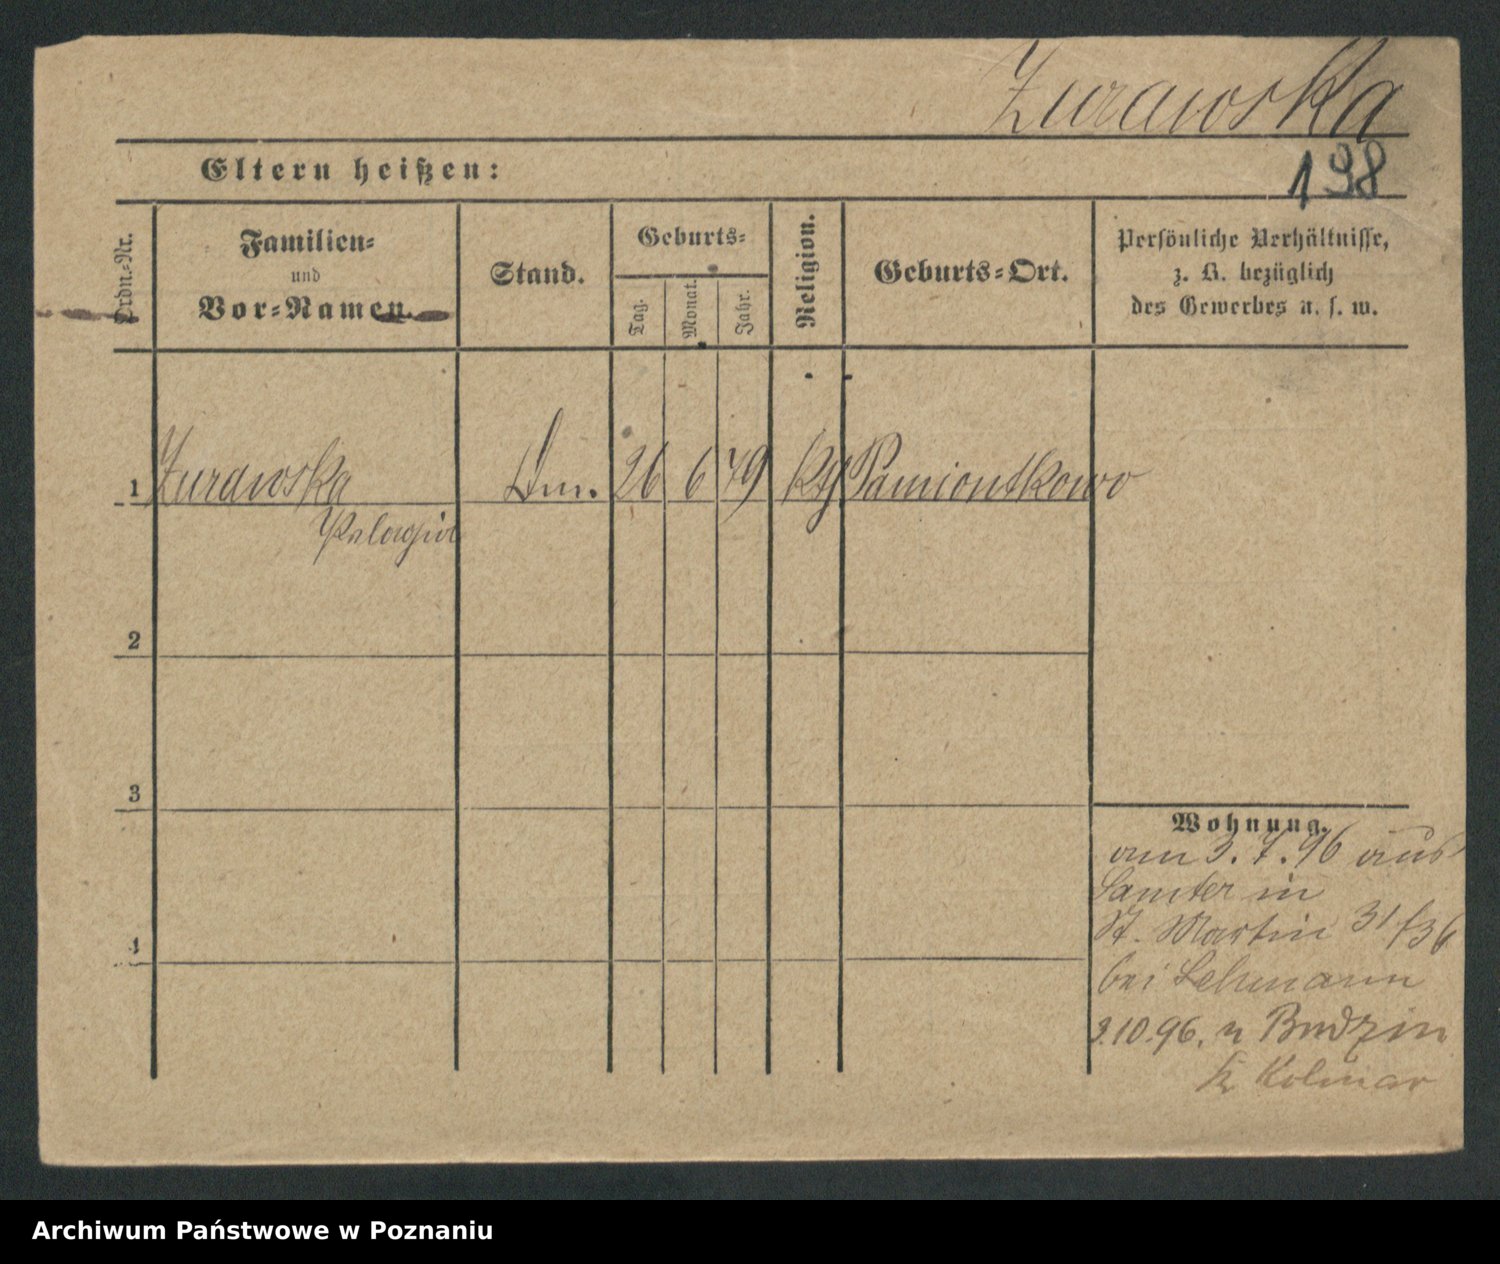 Zurawska
Eltern heißen:
198
Ordn.-Nr.
Familien-
und
Vor-Namen.
Stand.
Geburts-
Tag.
Monat.
Jahr.
Religion.
Geburts-Ort.
Persönliche Verhältnisse,
z. B. bezüglich
des Gewerbes u. s. w.
1 Zurawska 26 6 79 Pamiontkowo
Pelagia
2
3
4
Wohnung.
am 3.7.96 aus
Samter in
St. Martin 31/36
bei Lehmann
2.10.96. n Budzin
Kr Kolmar
Archiwum Państwowe w Poznaniu